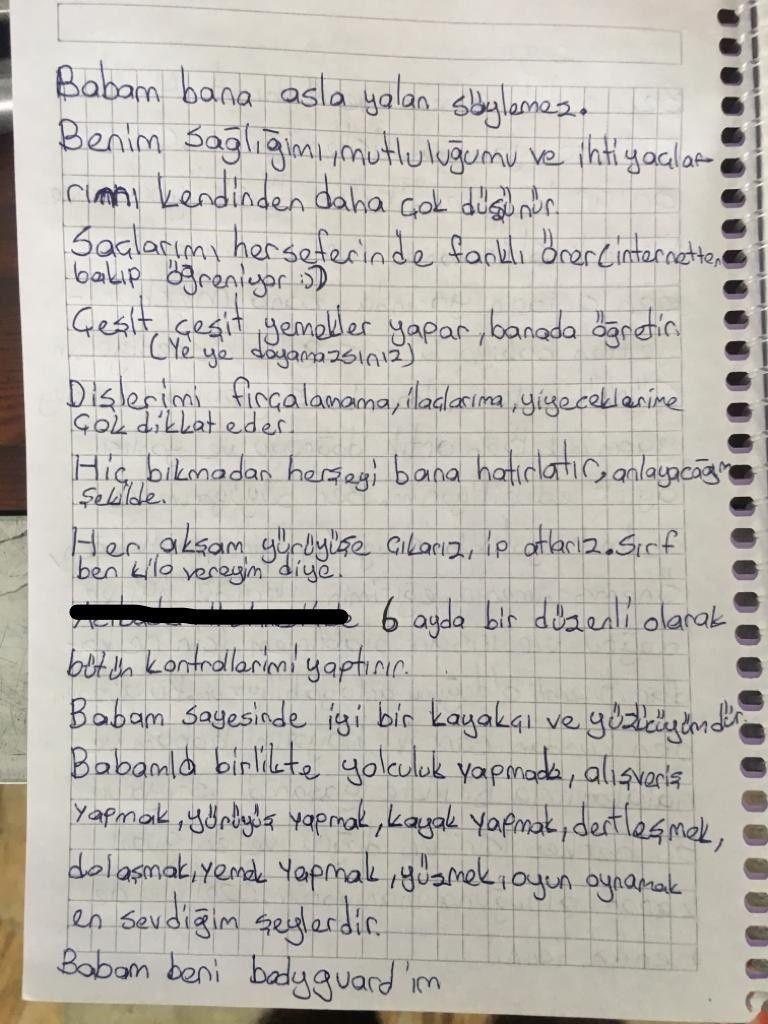 Babam bana asla yalan söylemez.
Benim sağlığımı, mutluluğumu ve ihtiyaçla
rımı kendinden daha çok düşünür.
Saçlarımı herseferinde farklı örer(internetten
bakıp öğreniyor :))
Çeşit çeşit yemekler yapar, banada öğretir.
(Ye ye doyamazsınız)
Dişlerimi fırçalamama, ilaçlarıma, yiyeceklerime
çok dikkat eder.
Hiç bıkmadan herşeyi bana hatırlatır, anlayacağım
şekilde.
Her akşam yürüyüşe çıkarız, ip atlarız. Sırf
ben kilo vereyim diye.
6 ayda bir düzenli olarak
bütün kontrollerimi yaptırır.
Babam sayesinde iyi bir kayakçı ve yüzücüyümdür.
Babamla birlikte yolculuk yapmada, alışveriş
yapmak, yürüyüş yapmak, kayak yapmak, dertleşmek,
dolaşmak, yemek yapmak, yüzmek, oyun oynamak
en sevdiğim şeylerdir.
Babam beni bodyguard'ım